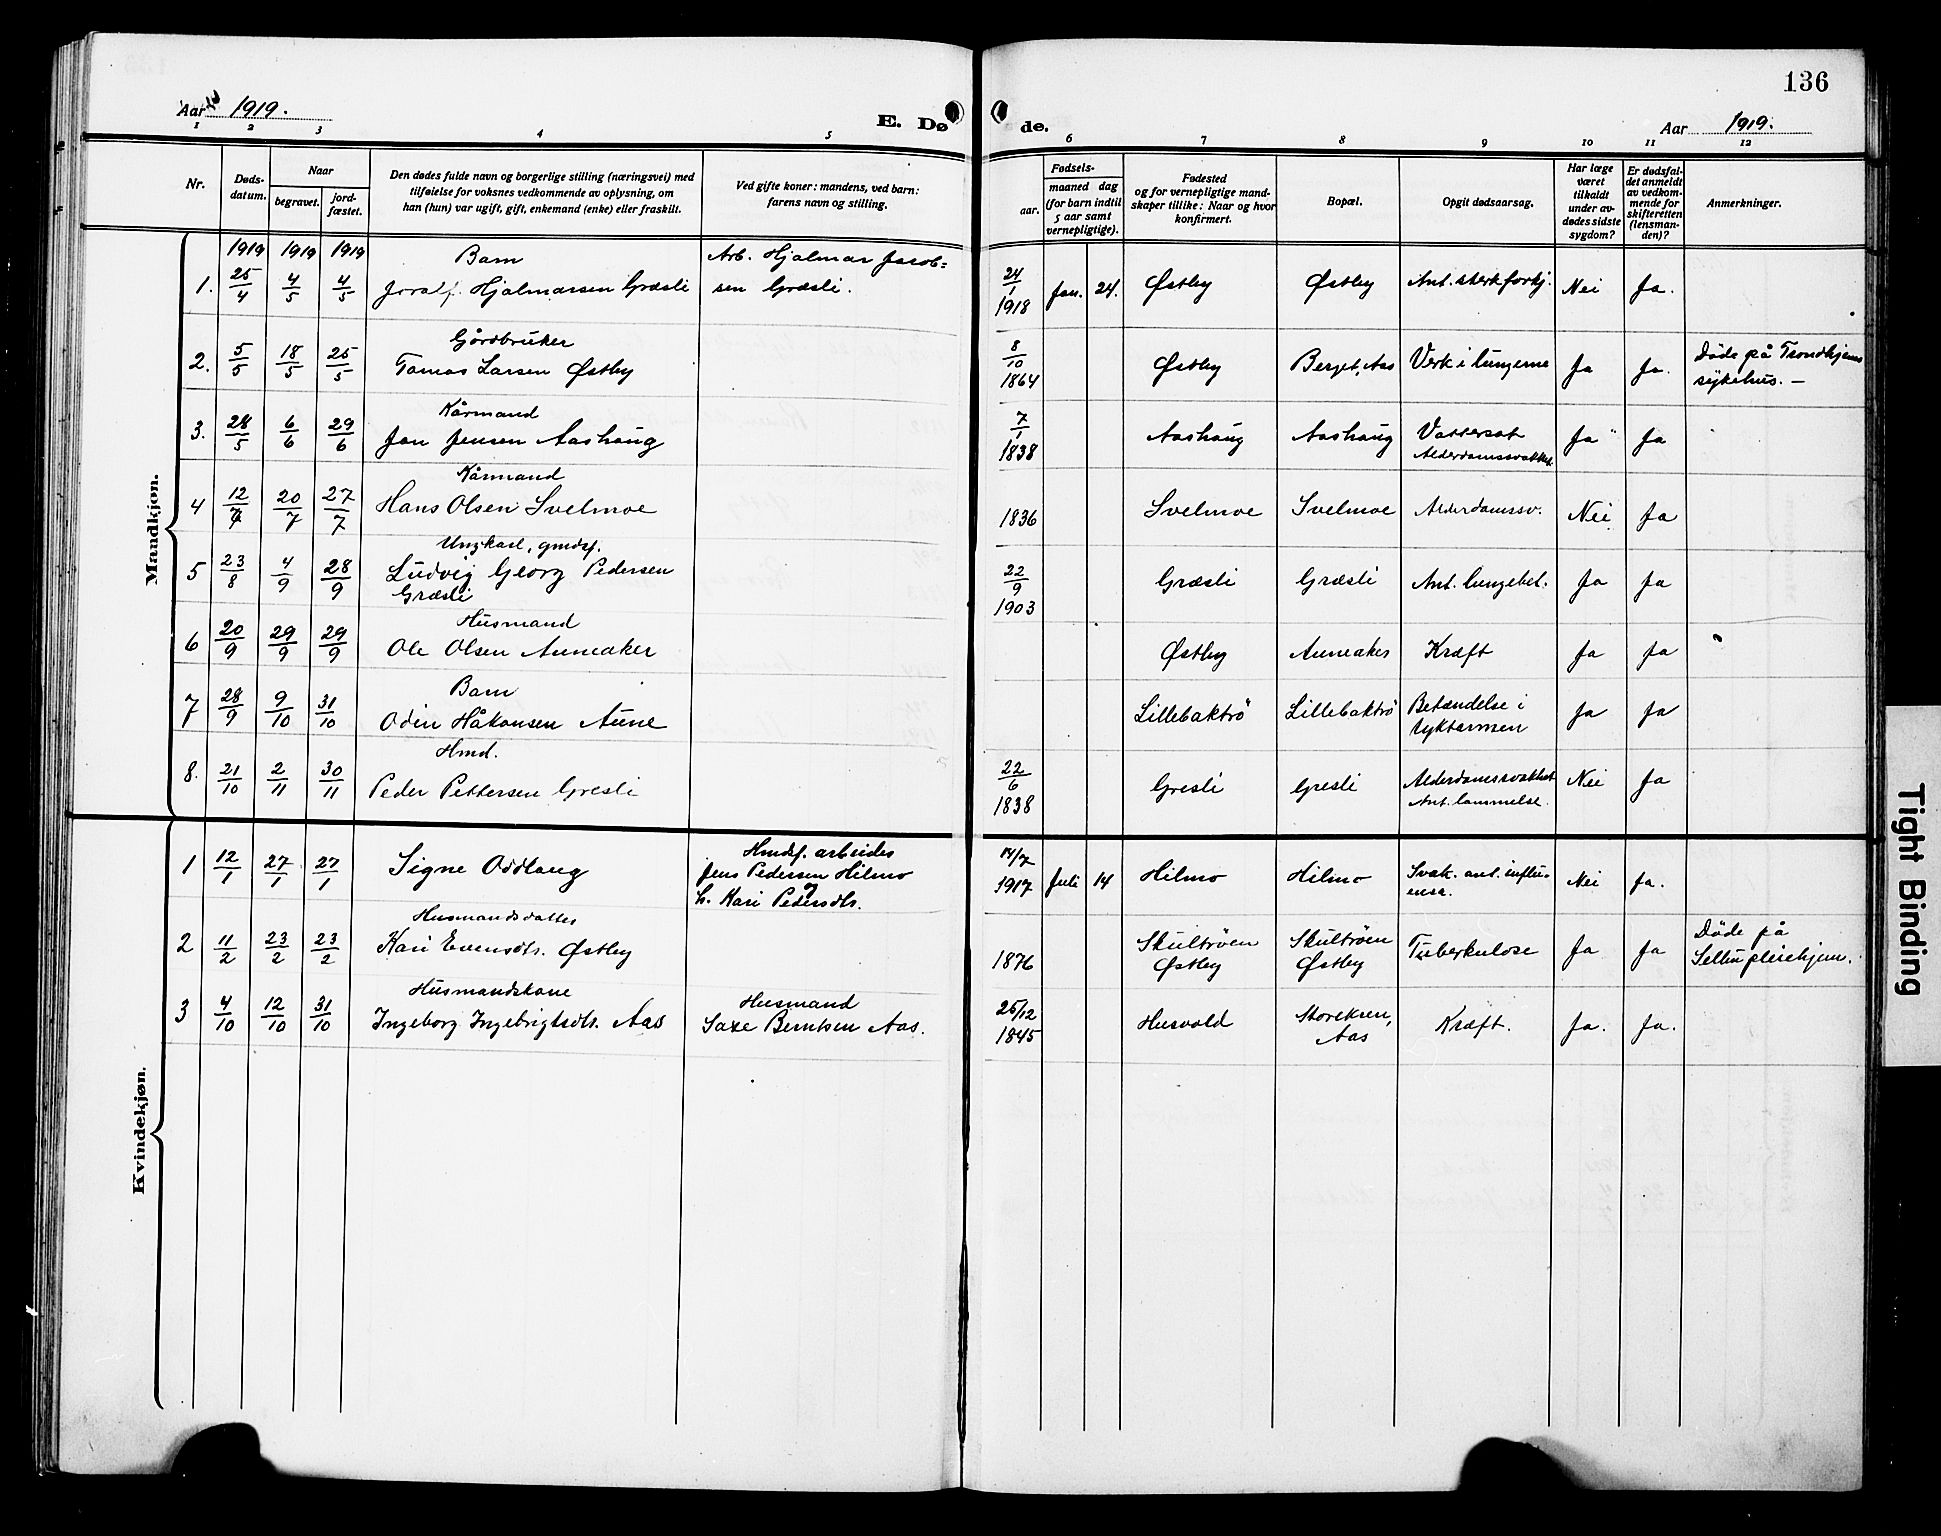 136
Aar 1919.
E. Dø
de.
Aar 1919.
1 2 3 4 5 6 7 8 9 10 11 12
Nr.
Døds-
datum.
Naar
begravet.
jord-
fæstet.
Den dødes fulde navn og borgerlige stilling (næringsvei) med
tilføielse for voksnes vedkommende av oplysning, om
han (hun) var ugift, gift, enkemand (enke) eller fraskilt.
Ved gifte koner: mandens, ved barn:
farens navn og stilling.
Fødsels-
aar.
maaned dag
(for barn indtil
5 aar samt
vernepligtige).
Fødested
og for vernepligtige mand-
skaper tillike: Naar og hvor
konfirmert.
Bopæl.
Opgit dødsaarsag.
Har læge
været
tilkaldt
under av-
dødes sidste
sygdom?
Er dødsfal-
det anmeldt
av vedkom-
mende for
skifteretten
(lensman-
den)?
Anmerkninger.
Mandkjøn.
1919 1919 1919 Barn Arb. Hjalmar Jacob=
1. 25/4 4/5 4/5 Hjalmarsen Græsli sen Græsli. 24/1 1918 Jan. 24. Østby Østby Ant. sterk forkj. Nei Ja.
Gårdbruker
2. 5/5 18/5 25/5 Tomas Larsen Østby 8/10 1864 Østby Berget, Aas Verk i lungerne Ja Ja. Døde på Trondhjems
sykehus. —
Kårmand
3. 28/5 6/6 29/6 Jon Jensen Aashaug 7/1 1838 Aashaug Aashaug Vattersot Ja Ja
Alderdomssvakhet
Kårmand
4 12/7 20/7 27/7 Hans Olsen Svelmoe 1836 Svelmoe Svelmoe Alderdomssv. Nei Ja
Ungkarl, gmdsf.
5 23/8 4/9 28/9 Ludvig Georg Pedersen 22/9 1903 Græsli Græsli Ant. lungebet. Ja Ja
Græsli
Husmand
6 20/9 29/9 29/9 Ole Olsen Auneaker Østby Auneaker Kræft Ja Ja
Barn
7 28/9 9/10 31/10 Odin Håkonsen Aune Lillebaktrø Lillebaktrø Betændelse i Ja Ja
tyktarmen
Hmd.
8. 21/10 2/11 30/11 Peder Pettersen Gresli 22/6 1838 Gresli Gresli Alderdomssvakhet Nei Ja
Ant. lammelse.
Kvindekjøn.
Hmdsf. arbeider
1 12/1 27/1 27/1 Signe Oddlaug Jens Pedersen Hilmo 14/7 1917 Juli 14 Hilmo Hilmo Svak. ant. influ- Nei Ja.
h. Kari Pedersdtr. ensa.
Husmandsdatter
2 11/2 23/2 23/2 Kari Evensdtr. Østby 1876 Skultrøen Skultrøen Tuberkulose Ja Ja Døde på
Østby Østby Selbu pleiehjem.
Husmandskone Husmand
3 4/10 12/10 31/10 Ingeborg Ingebrigtsdtr. Aas Saxe Berntsen Aas. 25/12 1845 Husvold Storeksen, Kræft. Ja. Ja.
Aas
Tight Binding